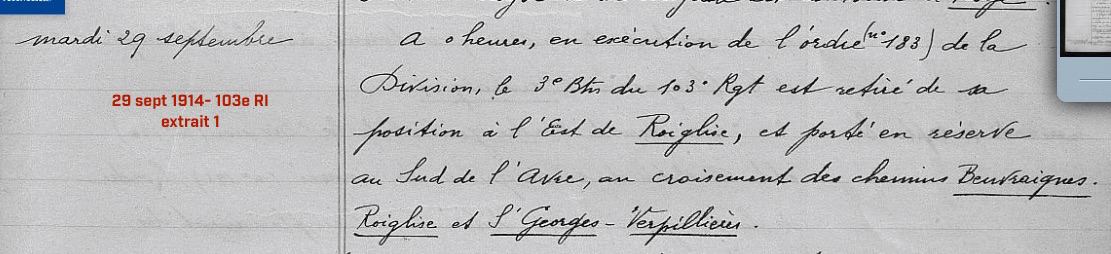 mardi 29 septembre
29 sept 1914- 103e RI
extrait 1
A 0 heures, en exécution de l'ordre (n° 183) de la
Division, le 3e Btn du 103e Rgt est retiré de sa
position à l'Est de Roiglise, et porté en réserve
au Sud de l'Avre, au croisement des chemins Beuvraignes.
Roiglise et St Georges - Verpillières.